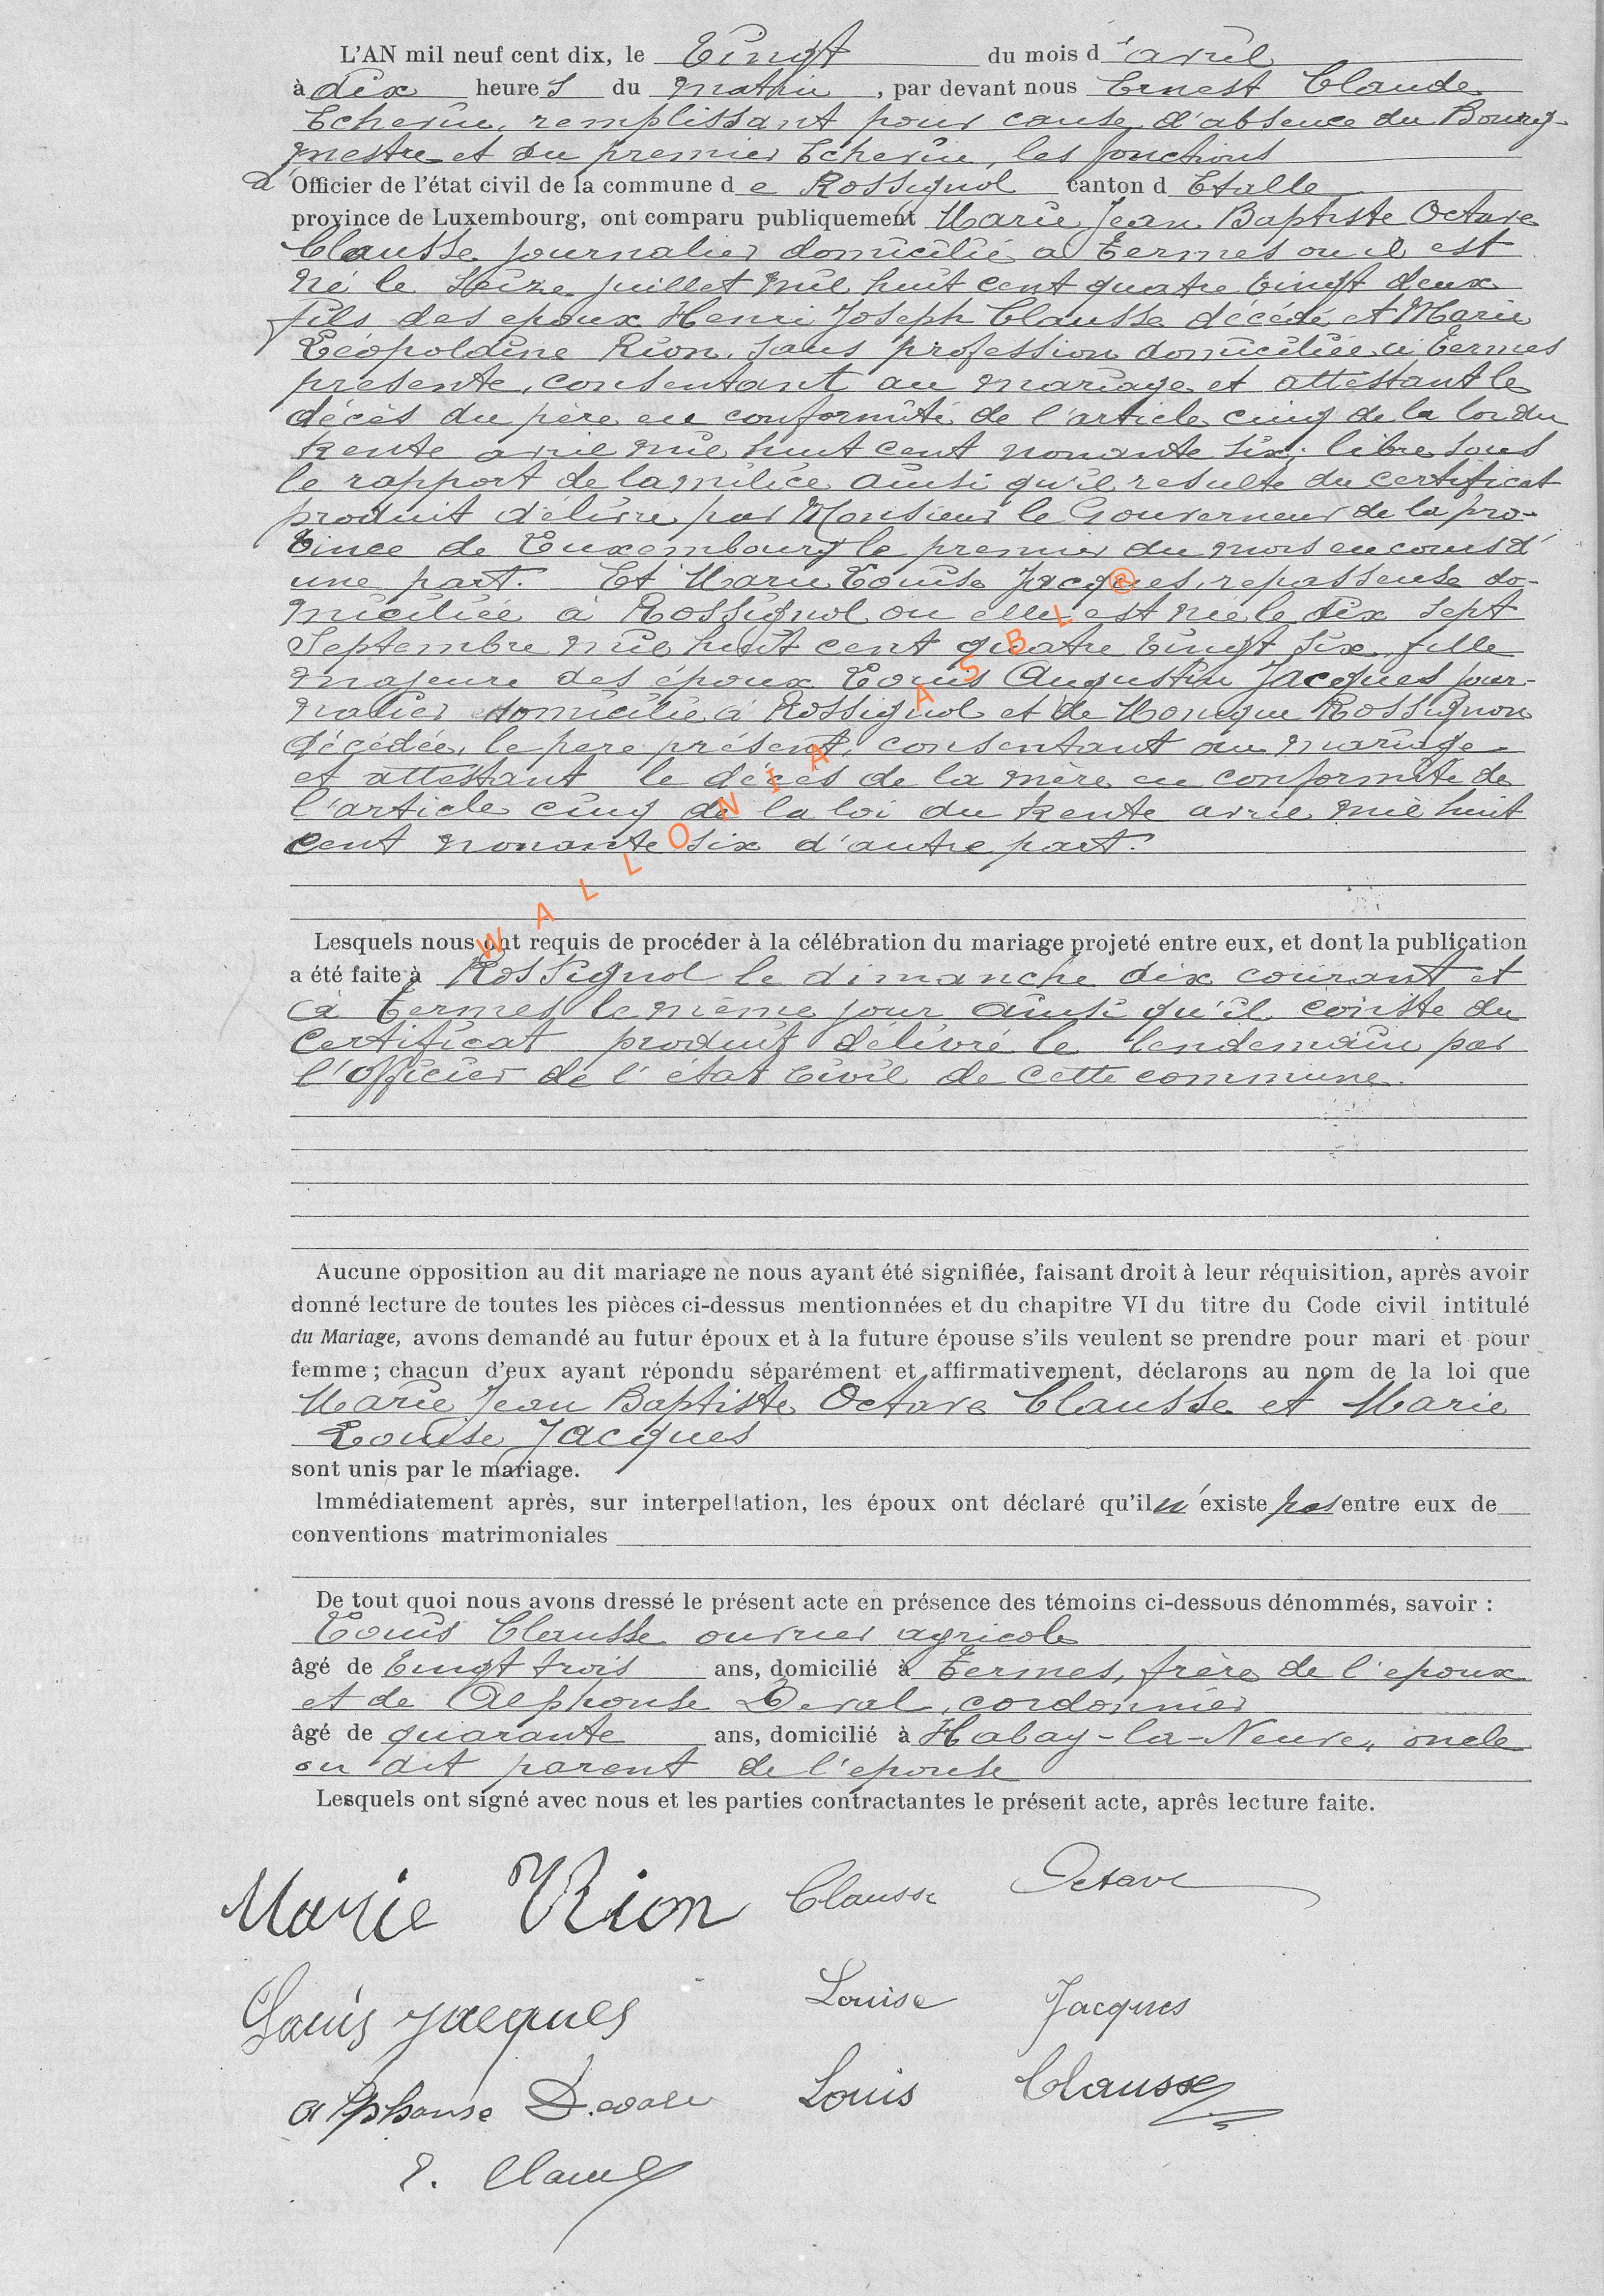 L'AN mil neuf cent dix, le Vingt du mois d'avril
à dix heures du matin, par devant nous Ernest Claude
Echevin, remplissant pour cause d'absence du Bourg-
mestre et du premier Echevin, les fonctions
d'Officier de l'état civil de la commune de Rossignol canton d Etalle
province de Luxembourg, ont comparu publiquement Marie Jean Baptiste Octave
Clausse journalier domicilié à Termes ou il est
né le seize juillet mil huit cent quatre vingt deux
fils des epoux Henri Joseph Clausse décédé et Marie
Léopoldine Rion, sans profession domiciliée à Termes
presente, consentant au mariage et attestant le
décès du père en conformité de l'article cinq de la loi du
trente avril mil huit cent nonante six; libre sous
le rapport de la milice ainsi qu'il resulte du certificat
produit délivre par Monsieur le Gouverneur de la pro-
vince de Luxembourg le premier du mois en cours d'
une part. Et Marie Louise Jacques, repasseuse do-
miciliée à Rossignol ou elle est née le dix sept
Septembre mil huit cent quatre vingt six, fille
majeure des époux Louis Augustin Jacques jour-
nalier domicilié à Rossignol et de Monique Rossignon
décédée, le pere présent, consentant au mariage
et attestant le décès de la mère en conformité de
l'article cinq de la loi du trente avril mil huit
cent nonante six d'autre part.
WALLONIA ASBL ®
Lesquels nous ont requis de procéder à la célébration du mariage projeté entre eux, et dont la publication
a été faite à Rossignol le dimanche dix courant et
à Termes le même jour ainsi qu'il conste du
Certificat produit délivré le lendemain par
l'Officier de l'état Civil de cette commune.
Aucune opposition au dit mariage ne nous ayant été signifiée, faisant droit à leur réquisition, après avoir
donné lecture de toutes les pièces ci-dessus mentionnées et du chapitre VI du titre du Code civil intitulé
du Mariage, avons demandé au futur époux et à la future épouse s'ils veulent se prendre pour mari et pour
femme ; chacun d'eux ayant répondu séparément et affirmativement, déclarons au nom de la loi que
Marie Jean Baptiste Octave Clausse et Marie
Louise Jacques
sont unis par le mariage.
Immédiatement après, sur interpellation, les époux ont déclaré qu'il n'existe pas entre eux de
conventions matrimoniales
De tout quoi nous avons dressé le présent acte en présence des témoins ci-dessous dénommés, savoir :
Louis Clausse ouvrier agricole
âgé de Vingt trois ans, domicilié à Termes, frère de l'epoux
et de Alphonse Deval, cordonnier
âgé de quarante ans, domicilié à Habay-la-Neuve, oncle
ou dit parent de l'epouse
Lesquels ont signé avec nous et les parties contractantes le présent acte, après lecture faite.
Marie Rion Clausse Octave
Louis Jacques Louise Jacques
Alphonse Devale Louis Clausse
E. Claude